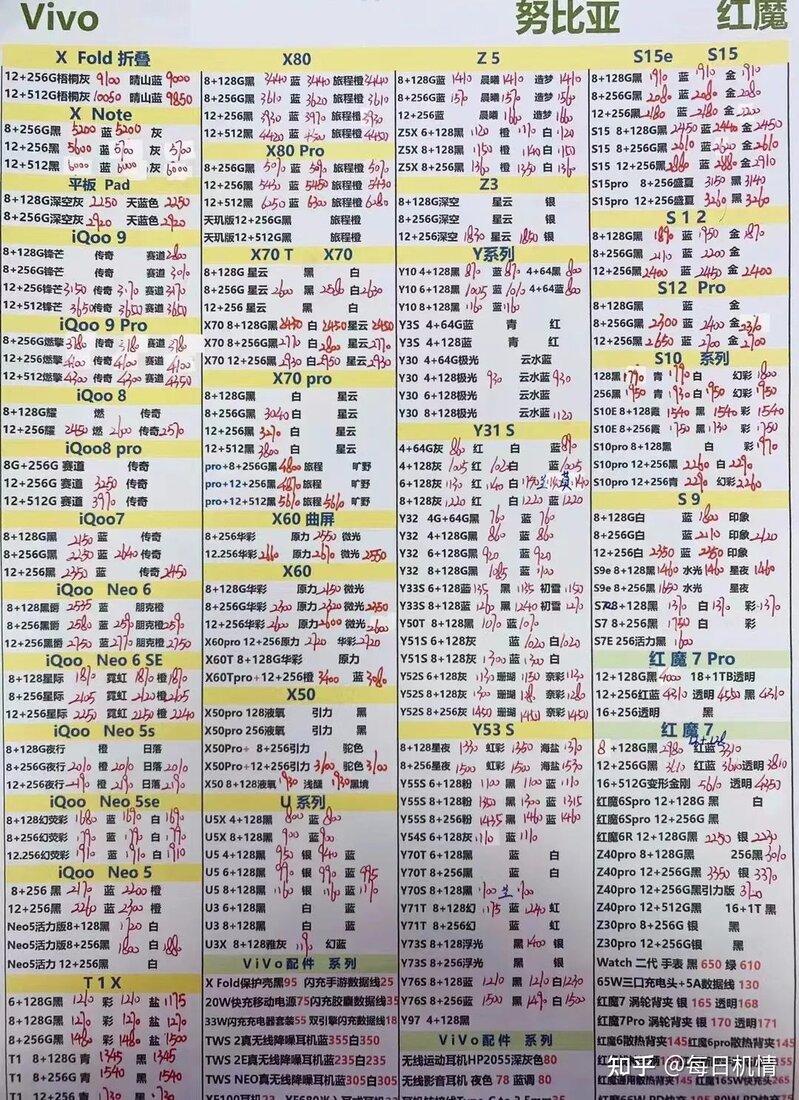 Vivo
努比亚 红魔
X Fold 折叠
12+256G梧桐灰 9100 晴山蓝 9000
12+512G梧桐灰 10050 晴山蓝 9850
X Note
8+256G黑 5200 蓝 5200 灰
12+256黑 5600 蓝 5700 灰 5700
12+512黑 6000 蓝 6000 灰 6000
平板 Pad
8+128G深空灰 2250 天蓝色 2250
8+256G深空灰 2920 天蓝色 2920
iQoo 9
8+128G锋芒 传奇 赛道 2800
8+256G锋芒 传奇 赛道 3010
12+256锋芒 3150 传奇 3170 赛道 3170
12+512锋芒 3650 传奇 3650 赛道 3650
iQoo 9 Pro
8+256G燃擎 3780 传奇 3780 赛道 3780
12+256燃擎 4100 传奇 4100 赛道 4100
12+512燃擎 4300 传奇 4300 赛道 4350
iQoo 8
8+128G耀 燃 传奇
12+256耀 2450 燃 2600 传奇 2570
iQoo8 pro
8G+256G 赛道 传奇
12+256G 赛道 3250 传奇
12+512G 赛道 3970 传奇
iQoo7
8+128G黑 2150 蓝 传奇
8+256G黑 2250 蓝 2640 传奇
12+256黑 2350 蓝 传奇 2450
iQoo Neo 6
8+128黑爵 2535 蓝 朋克橙
8+256黑爵 2580 蓝 2590 朋克橙 2590
12+256黑爵 2750 蓝 2770 朋克橙 2750
iQoo Neo 6 SE
8+128星际 1870 霓虹 1870 橙 1870
8+256星际 2105 霓虹 2120 橙 2105
12+256星际 2250 霓虹 2250 橙 2240
iQoo Neo 5s
8+128G夜行 橙 日落
8+256G夜行 2010 橙 2010 日落 2010
12+256夜行 2190 橙 2190 日落 2190
iQoo Neo 5se
8+128幻荧彩 1680 蓝 1690 白 1690
8+256幻荧彩 1790 蓝 1790 白 1790
12.256幻荧彩 1910 蓝 1910 白 1910
iQoo Neo 5
8+256 黑 2170 蓝 2200 橙
12+256 黑 2260 蓝 2300 橙
Neo5活力版8+128黑 1720 白
Neo5活力版8+256黑 1800 白 1880
Neo5活力 12+256黑 白
T1X
6+128G黑 1210 彩 1210 盐 1175
8+128G黑 1270 彩 1270 盐 1270
8+256G黑 1480 彩 1480 盐 1500
T1 8+128G 青 1345 黑 1345
T1 8+256G 青 1540 黑 1540
T1 12+256 青 1730 黑 1730
X80
8+128G黑 3440 蓝 3440 旅程橙 3440
8+256G黑 3610 蓝 3620 旅程橙 3610
12+256黑 3930 蓝 3970 旅程橙 3930
12+512黑 4420 蓝 4500 旅程橙 4450
X80 Pro
8+256G黑 5070 蓝 5090 旅程橙 5070
12+256黑 5430 蓝 5450 旅程橙 5430
12+512黑 6250 蓝 6300 旅程橙 6280
天玑版12+256G黑 旅程橙
天玑版12+512G黑 旅程橙
X70 T X70
8+128G 星云 黑 白
8+256G 星云 2600 黑 2580 白 2630
12+256 星云 黑 白
X70 8+128G黑 2430 白 2450 星云 2450
X70 8+256G黑 2770 白 2800 星云 2770
X70 12+256黑 2930 白 2950 星云 2930
X70 pro
8+128G黑 白 星云
8+256G黑 3040 白 星云
12+256黑 3270 白 星云
12+512黑 3800 白 星云
pro+8+256G黑 4800 旅程 旷野
pro+12+256黑 4870 旅程 旷野
pro+12+512黑 5610 旅程 5610 旷野
X60 曲屏
8+256华彩 原力 2550 微光
12.256华彩 2660 原力 2670 微光 2550
X60
8+128G华彩 原力 2150 微光
8+256G华彩 2300 原力 2300 微光 2350
12+256华彩 2600 原力 2600 微光 2600
X60pro 12+256原力 2720 华彩 2720
X60T 8+128G华彩 原力
X60Tpro+12+256橙 3400 蓝 3080
X50
X50pro 128液氧 引力 黑
X50pro 256液氧 引力 黑
X50Pro+ 8+256引力 驼色
X50Pro+ 12+256引力 3100 驼色 3100
X50 8+128液氧 1930 浅醺 1930 黑境
U 系列
U5X 4+128黑 800 蓝 800
U5X 8+128黑 900 蓝 900
U5 4+128黑 950 银 940 蓝
U5 6+128黑 990 银 990 蓝 995
U5 8+128黑 1160 银 1160 蓝 1170
U3 6+128黑 白 蓝
U3 8+128黑 白 蓝
U3X 8+128雅灰 1190 幻蓝
ViVo配件 系列
X Fold保护壳黑95 闪充手游数据线25
20W快充移动电源75 闪充胶囊数据线35
33W闪充充电器套装55 双引擎闪充数据线18
TWS 2真无线降噪耳机蓝355白350
TWS 2E真无线降噪耳机蓝235白235
TWS NEO真无线降噪耳机蓝305白305
Z 5
8+128G蓝 1410 晨曦 1410 造梦 1410
8+256G蓝 1570 晨曦 1570 造梦 1560
12+256蓝 晨曦 1660 造梦 1660
Z5X 6+128黑 1120 橙 1170 白 1120
Z5X 8+128黑 1150 橙 1140 白 1150
Z5X 8+256黑 1360 橙 1350 白 1360
Z3
8+128G深空 星云 银
8+256G深空 星云 银
12+256深空 1830 星云 1850 银
Y系列
Y10 4+128黑 870 蓝 870 4+64黑 800
Y10 6+128黑 1005 蓝 1010 4+64蓝 800
Y10 8+128黑 1160 蓝 1160
Y3S 4+64G蓝 青 红
Y3S 4+128蓝 青 红
Y30 4+64G极光 云水蓝
Y30 4+128极光 930 云水蓝 930
Y30 6+128极光 云水蓝
Y30 8+128极光 云水蓝 1120
Y31 S
4+64G灰 860 红 白 蓝 890
4+128灰 1005 红 1020 白 蓝 1005
6+128灰 1130 红 1140 白
8+128灰 1220 红 白 1220 蓝 1220
Y32 4G+64G黑 760 蓝 760
Y32 4+128G黑 860 蓝 860
Y32 6+128G黑 920 蓝 920
Y32 8+128G黑 1085 蓝 1100
Y33S 6+128蓝 1135 黑 1135 初雪 1150
Y33S 8+128蓝 1260 黑 1240 初雪 1270
Y50T 8+128G黑 1070 蓝 1070
Y51S 6+128灰 蓝 1020 白 1020
Y51S 8+128灰 1300 蓝 1300 白
Y52S 6+128灰 1130 珊瑚 1150 奈彩 1130
Y52S 8+128灰 1300 珊瑚 奈彩 1280
Y52S 8+256灰 1450 珊瑚 1440 奈彩 1450
Y53 S
8+128星夜 1330 虹彩 1350 海盐 1370
8+256星夜 1500 虹彩 1500 海盐 1530
Y55S 6+128粉 1100 黑 1100 蓝 1110
Y55S 8+128粉 1350 黑 1300 蓝 1315
Y55S 8+256粉 1435 黑 1460 蓝 1460
Y54S 6+128灰 1110 蓝 1110
Y70T 6+128黑 蓝 白
Y70T 8+256黑 蓝 白
Y70S 8+128黑 1700 兰 1700
Y71T 8+128幻 1175 蓝 1240 红
Y71T 8+256幻 蓝 红
Y73S 8+128浮光 黑 1400 银
Y73S 8+256浮光 黑 银
Y76S 8+128蓝 1210 黑 1210 白 1230
Y76S 8+256蓝 1500 黑 1490 白 1500
Y97 4+128黑
ViVo配件 系列
无线运动耳机HP2055深灰色80
无线影音耳机 夜色 78 蓝调 80
S15e S15
8+128G黑 1910 蓝 1910 金 1910
8+256G黑 2080 蓝 2080 金 2080
12+256黑 2180 蓝 2180 金 2200
S15 8+128G黑 2450 蓝 2440 金 2450
S15 8+256G黑 2610 蓝 2620 金 2610
S15 12+256黑 2880 蓝 2880 金 2910
S15pro 8+256盛夏 3150 黑 3140
S15pro 12+256盛夏 3260 黑 3260
S12
8+128G黑 1890 蓝 1950 金 1870
8+256G黑 2170 蓝 2200 金
12+256黑 2400 蓝 2450 金 2400
S12 Pro
8+128G黑 蓝 金
8+256G黑 2300 蓝 2400 金 2360
12+256黑 2650 蓝 2700 金 2700
S10 系列
128黑 1790 青 1790 白 幻彩 1800
256黑 1950 青 1930 白 1950 幻彩 1950
S10E 8+128霞 1540 黑 1540 彩 1540
S10E 8+256霞 1750 黑 1730 彩 1750
S10pro 8+128黑 白 彩 1970
S10pro 12+256黑 2260 白 2290
S10pro 12+256青 2290 幻彩 2260
S 9
8+128G白 蓝 1800 印象
8+256G白 蓝 2110 印象 2120
12+256白 2350 蓝 2350 印象
S9e 8+128黑 1460 水光 1460 星夜 1460
S9e 8+256黑 1650 水光 星夜
S7 8+128黑 1370 白 1370 彩 1370
S7 8+256黑 1750 白 彩
S7E 256活力黑 1600
红 魔 7 Pro
12+128G黑 4000 18+1TB透明
12+256红蓝 4310 透明 4550 黑 4310
16+256透明 黑
红 魔 7
8+128G黑 2980 红蓝 3310
12+128
12+256G黑 3610 红蓝 3610 透明 3810
16+512G变形金刚 5610 透明 4350
红魔6Spro 12+128G 黑 白
红魔6Spro 12+256G 黑
红魔6R 12+128G黑 2250 银 2230
Z40pro 8+128G黑 256黑 3010
Z40pro 12+256G黑 3350 银 3370
Z40pro 12+256G黑引力版 3720
Z40pro 12+512G黑 16+1T 黑
Z30pro 8+256G黑 银
Z30pro 12+256G黑 银
Watch 二代 手表 黑 650 绿 610
65W三口充电头+5A数据线 130
红魔7 涡轮背夹 银 165 透明168
红魔7Pro 涡轮背夹 银 170 透明 171
红魔6散热背夹145 红魔6pro散热背夹145
知乎 @每日机情